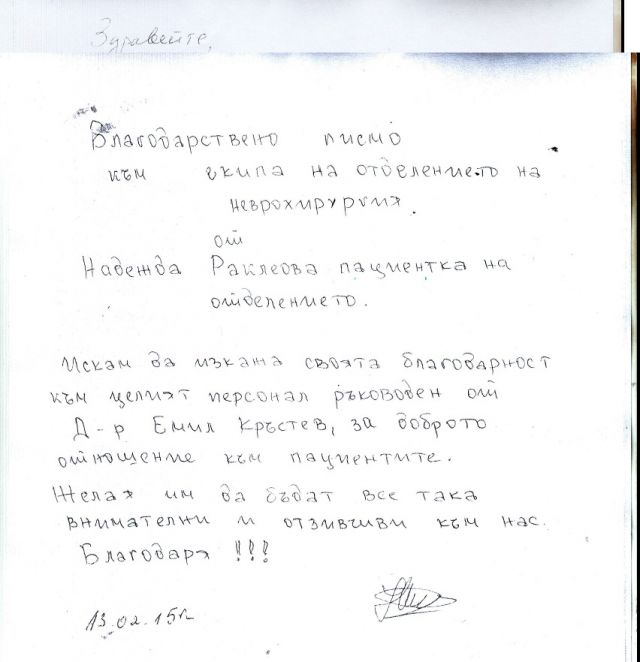 Здравейте,
Благодарствено писмо
към екипа на отделението на
неврохирургия.
от
Надежда Раклеова пациентка на
отделението.
Искам да изкажа своята благодарност
към целият персонал ръководен от
Д-р Емил Кръстев, за доброто
отношение към пациентите.
Желая им да бъдат все така
внимателни и отзивчиви към нас.
Благодаря !!!
13.02.15г.